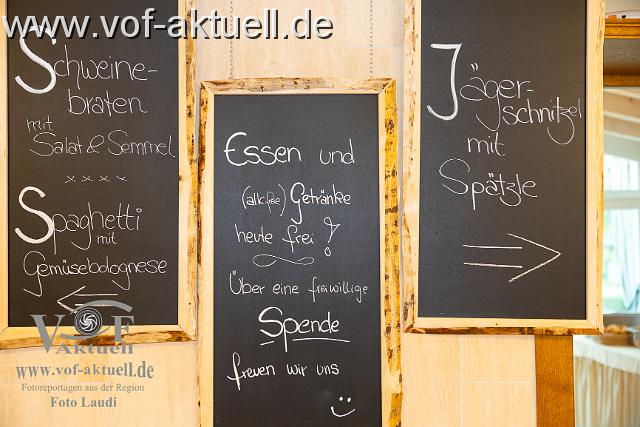 www.vof-aktuell.de
Schweine-
braten
mit
Salat & Semmel
x x x x
Spaghetti
mit
Gemüsebolognese
Essen und
(alk.freie) Getränke
heute frei!
Über eine freiwillige
Spende
freuen wir uns
Jäger-
schnitzel
mit
Spätzle
VOF
Aktuell
www.vof-aktuell.de
Fotoreportagen aus der Region
Foto Laudi